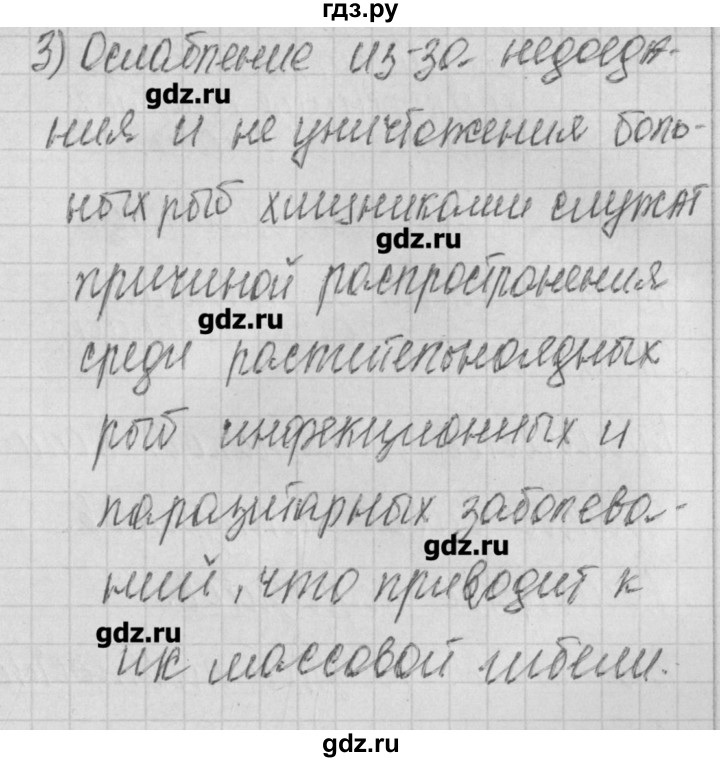 гдз.ру
3) Ослабление из-за недоеда-
gdz.ru
ния и не уничтожения боль-
ных рыб хищниками служат
gdz.ru
причиной распространения
gdz.ru
среди растительноядных
рыб инфекционных и
паразитарных заболева-
gdz.ru
ний, что приводит к
gdz.ru
их массовой гибели.
gdz.ru